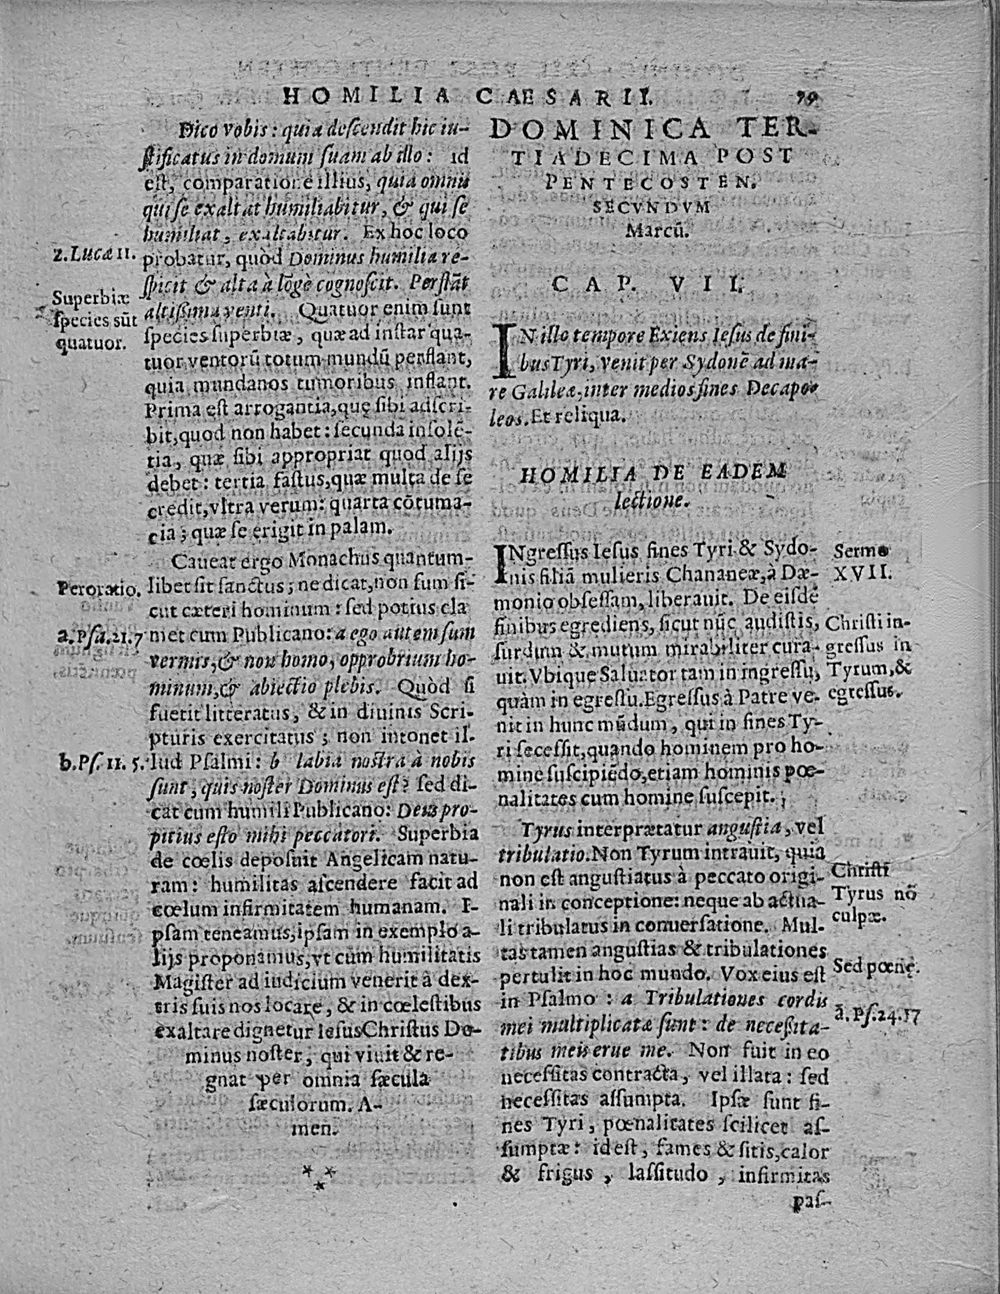 HOMILIA CAESARII. 79
Dico vobis: quia descendit hic iu-
stificatus in domum suam ab illo: id
est, comparatione illius, quia omnis
qui se exaltat humiliabitur, & qui se
humiliat, exaltabitur. Ex hoc loco
z. Lucæ 11.
probatur, quòd Dominus humilia re-
spicit & alta à lōgè cognoscit. Perstāt
Superbiæ
species sūt
quatuor.
altissima venti. Quatuor enim sunt
species superbiæ, quæ ad instar qua-
tuor ventorū totum mundū perflant,
quia mundanos tumoribus inflant.
Prima est arrogantia, quę sibi adscri-
bit, quod non habet: secunda insolē-
tia, quæ sibi appropriat quod alijs
debet: tertia fastus, quæ multa de se
credit, vltra verum: quarta cōtuma-
cia; quæ se erigit in palam.
Caueat ergo Monachus quantum-
Peroratio.
libet sit sanctus; ne dicat, non sum si-
cut cæteri hominum: sed potius cla
a. Psa. 21. 7
met cum Publicano: a ego autem sum
vermis, & non homo, opprobrium ho-
minum, & abiectio plebis. Quòd si
fuerit litteratus, & in diuinis Scri-
pturis exercitatus; non intonet il-
b. Ps. 11. 5.
lud Psalmi: b labia nostra à nobis
sunt, quis noster Dominus est? sed di-
cat cum humili Publicano: Deus pro-
pitius esto mihi peccatori. Superbia
de cœlis deposuit Angelicam natu-
ram: humilitas ascendere facit ad
cœlum infirmitatem humanam. I-
psam teneamus, ipsam in exemplo a-
lijs proponamus, vt cum humilitatis
Magister ad iudicium venerit à dex-
tris suis nos locare, & in cœlestibus
exaltare dignetur Iesus Christus Do-
minus noster; qui viuit & re-
gnat per omnia sæcula
sæculorum. A-
men.
***
DOMINICA TER-
TIADECIMA POST
PENTECOSTEN.
SECVNDVM
Marcū.
CAP. VII.
IN illo tempore Exiens Iesus de fini-
bus Tyri, venit per Sydonē ad ma-
re Galileæ, inter medios fines Decapo-
leos. Et reliqua.
HOMILIA DE EADEM
lectione.
Sermo
XVII.
INgressus Iesus fines Tyri & Sydo-
nis filiā mulieris Chananeæ, à Dæ-
monio obsessam, liberauit. De eisdē
Christi in-
gressus in
Tyrum, &
egressus.
finibus egrediens, sicut nūc audistis,
surdum & mutum mirabiliter cura-
uit. Vbique Saluator tam in ingressu,
quàm in egressu. Egressus à Patre ve-
nit in hunc mūdum, qui in fines Ty-
ri secessit, quando hominem pro ho-
mine suscipiēdo, etiam hominis pœ-
nalitates cum homine suscepit.
Tyrus interprætatur angustia, vel
tribulatio. Non Tyrum intrauit, quia
Christi
Tyrus nō
culpæ.
non est angustiatus à peccato origi-
nali in conceptione: neque ab actua-
li tribulatus in conuersatione. Mul-
tas tamen angustias & tribulationes
Sed pœnę.
pertulit in hoc mundo. Vox eius est
a. Ps. 24. 17
in Psalmo: a Tribulationes cordis
mei multiplicatæ sunt: de necessita-
tibus meis erue me. Non fuit in eo
necessitas contracta, vel illata: sed
necessitas assumpta. Ipsæ sunt fi-
nes Tyri, pœnalitates scilicet as-
sumptæ: id est, fames & sitis, calor
& frigus, lassitudo, infirmitas
pas-